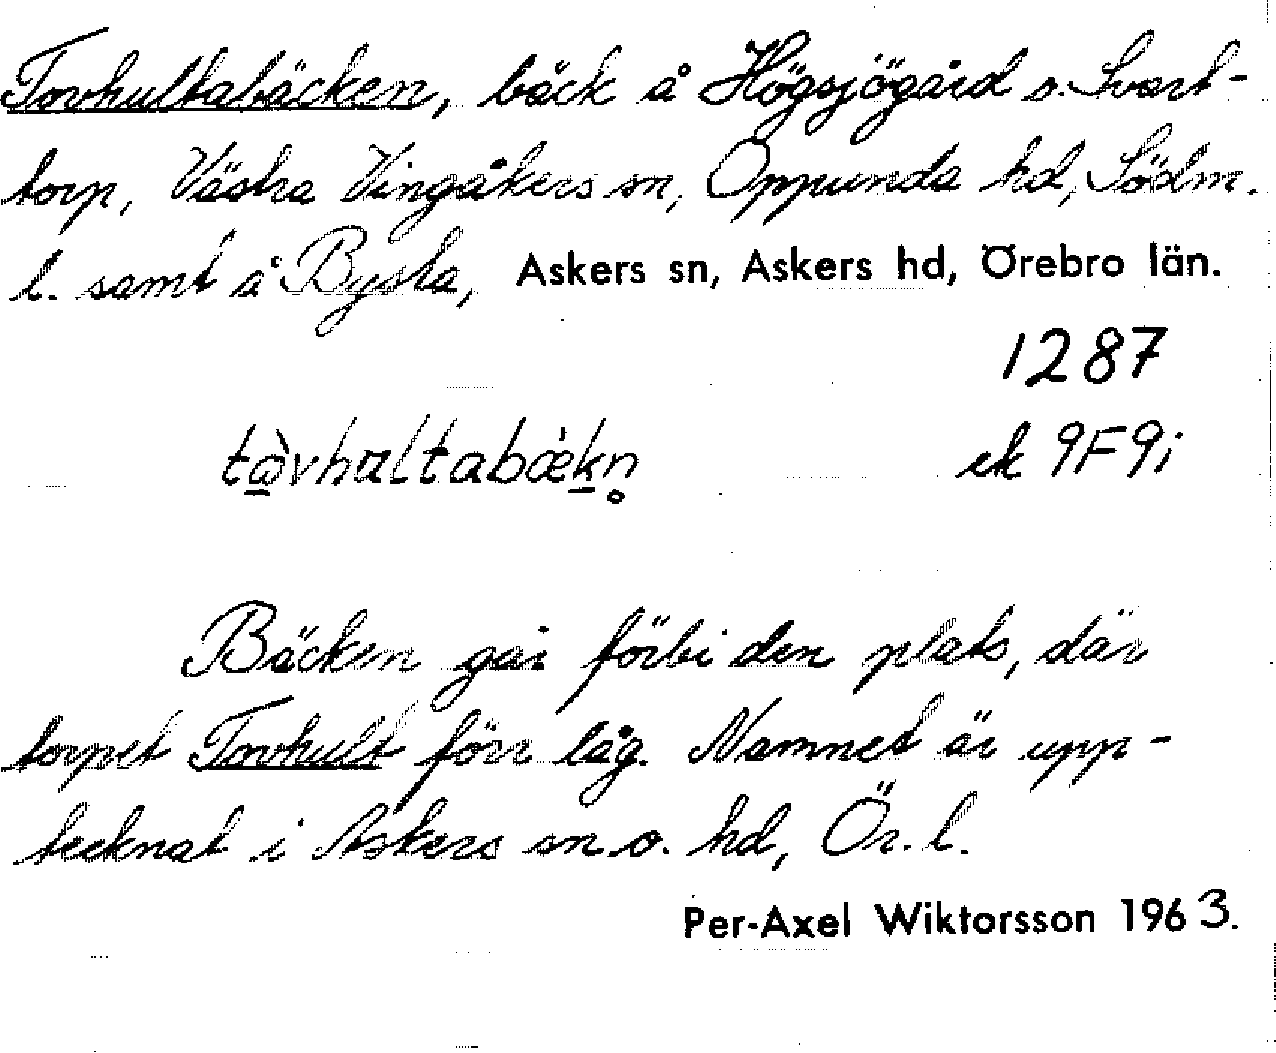 Tovhultabäcken, bäck å Högsjögård o. Svart-
torp, Västra Vingåkers sn, Oppunda hd, Södm.
l. samt å Bysta, Askers sn, Askers hd, Örebro län.
1287
tə̀vhultabæ̀kn̥
ek 9F9i
Bäcken går förbi den plats, där
torpet Tovhult förr låg. Namnet är upp-
tecknat i Askers sn o. hd, Ör. l.
Per-Axel Wiktorsson 1963.